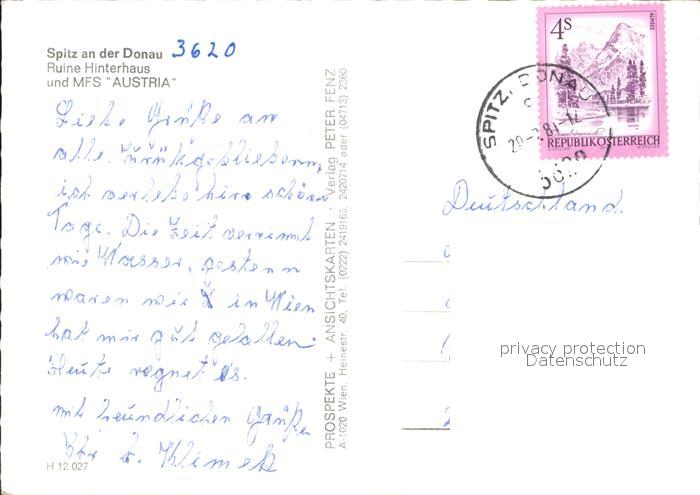 Spitz an der Donau 3620
Ruine Hinterhaus
und MFS "AUSTRIA"
Liebe Grüße an
alle Zurükgebliebenen,
ich verlebe hier schöne
Tage. Die Zeit verrinnt
wie Wasser, gestern
waren wir in Wien
hat mir gut gefallen.
Heute regnet es.
mit freundlichen Grüßen
Ihr
H 12.027
PROSPEKTE + ANSICHTSKARTEN · Verlag PETER FENZ
A-1020 Wien, Heinestr. 40, Tel. (0222) 2419165, 2420714 oder (04713) 2360
4S
ALMSEE
REPUBLIK ÖSTERREICH
SPITZ, DONAU
3620
Deutschland
privacy protection
Datenschutz